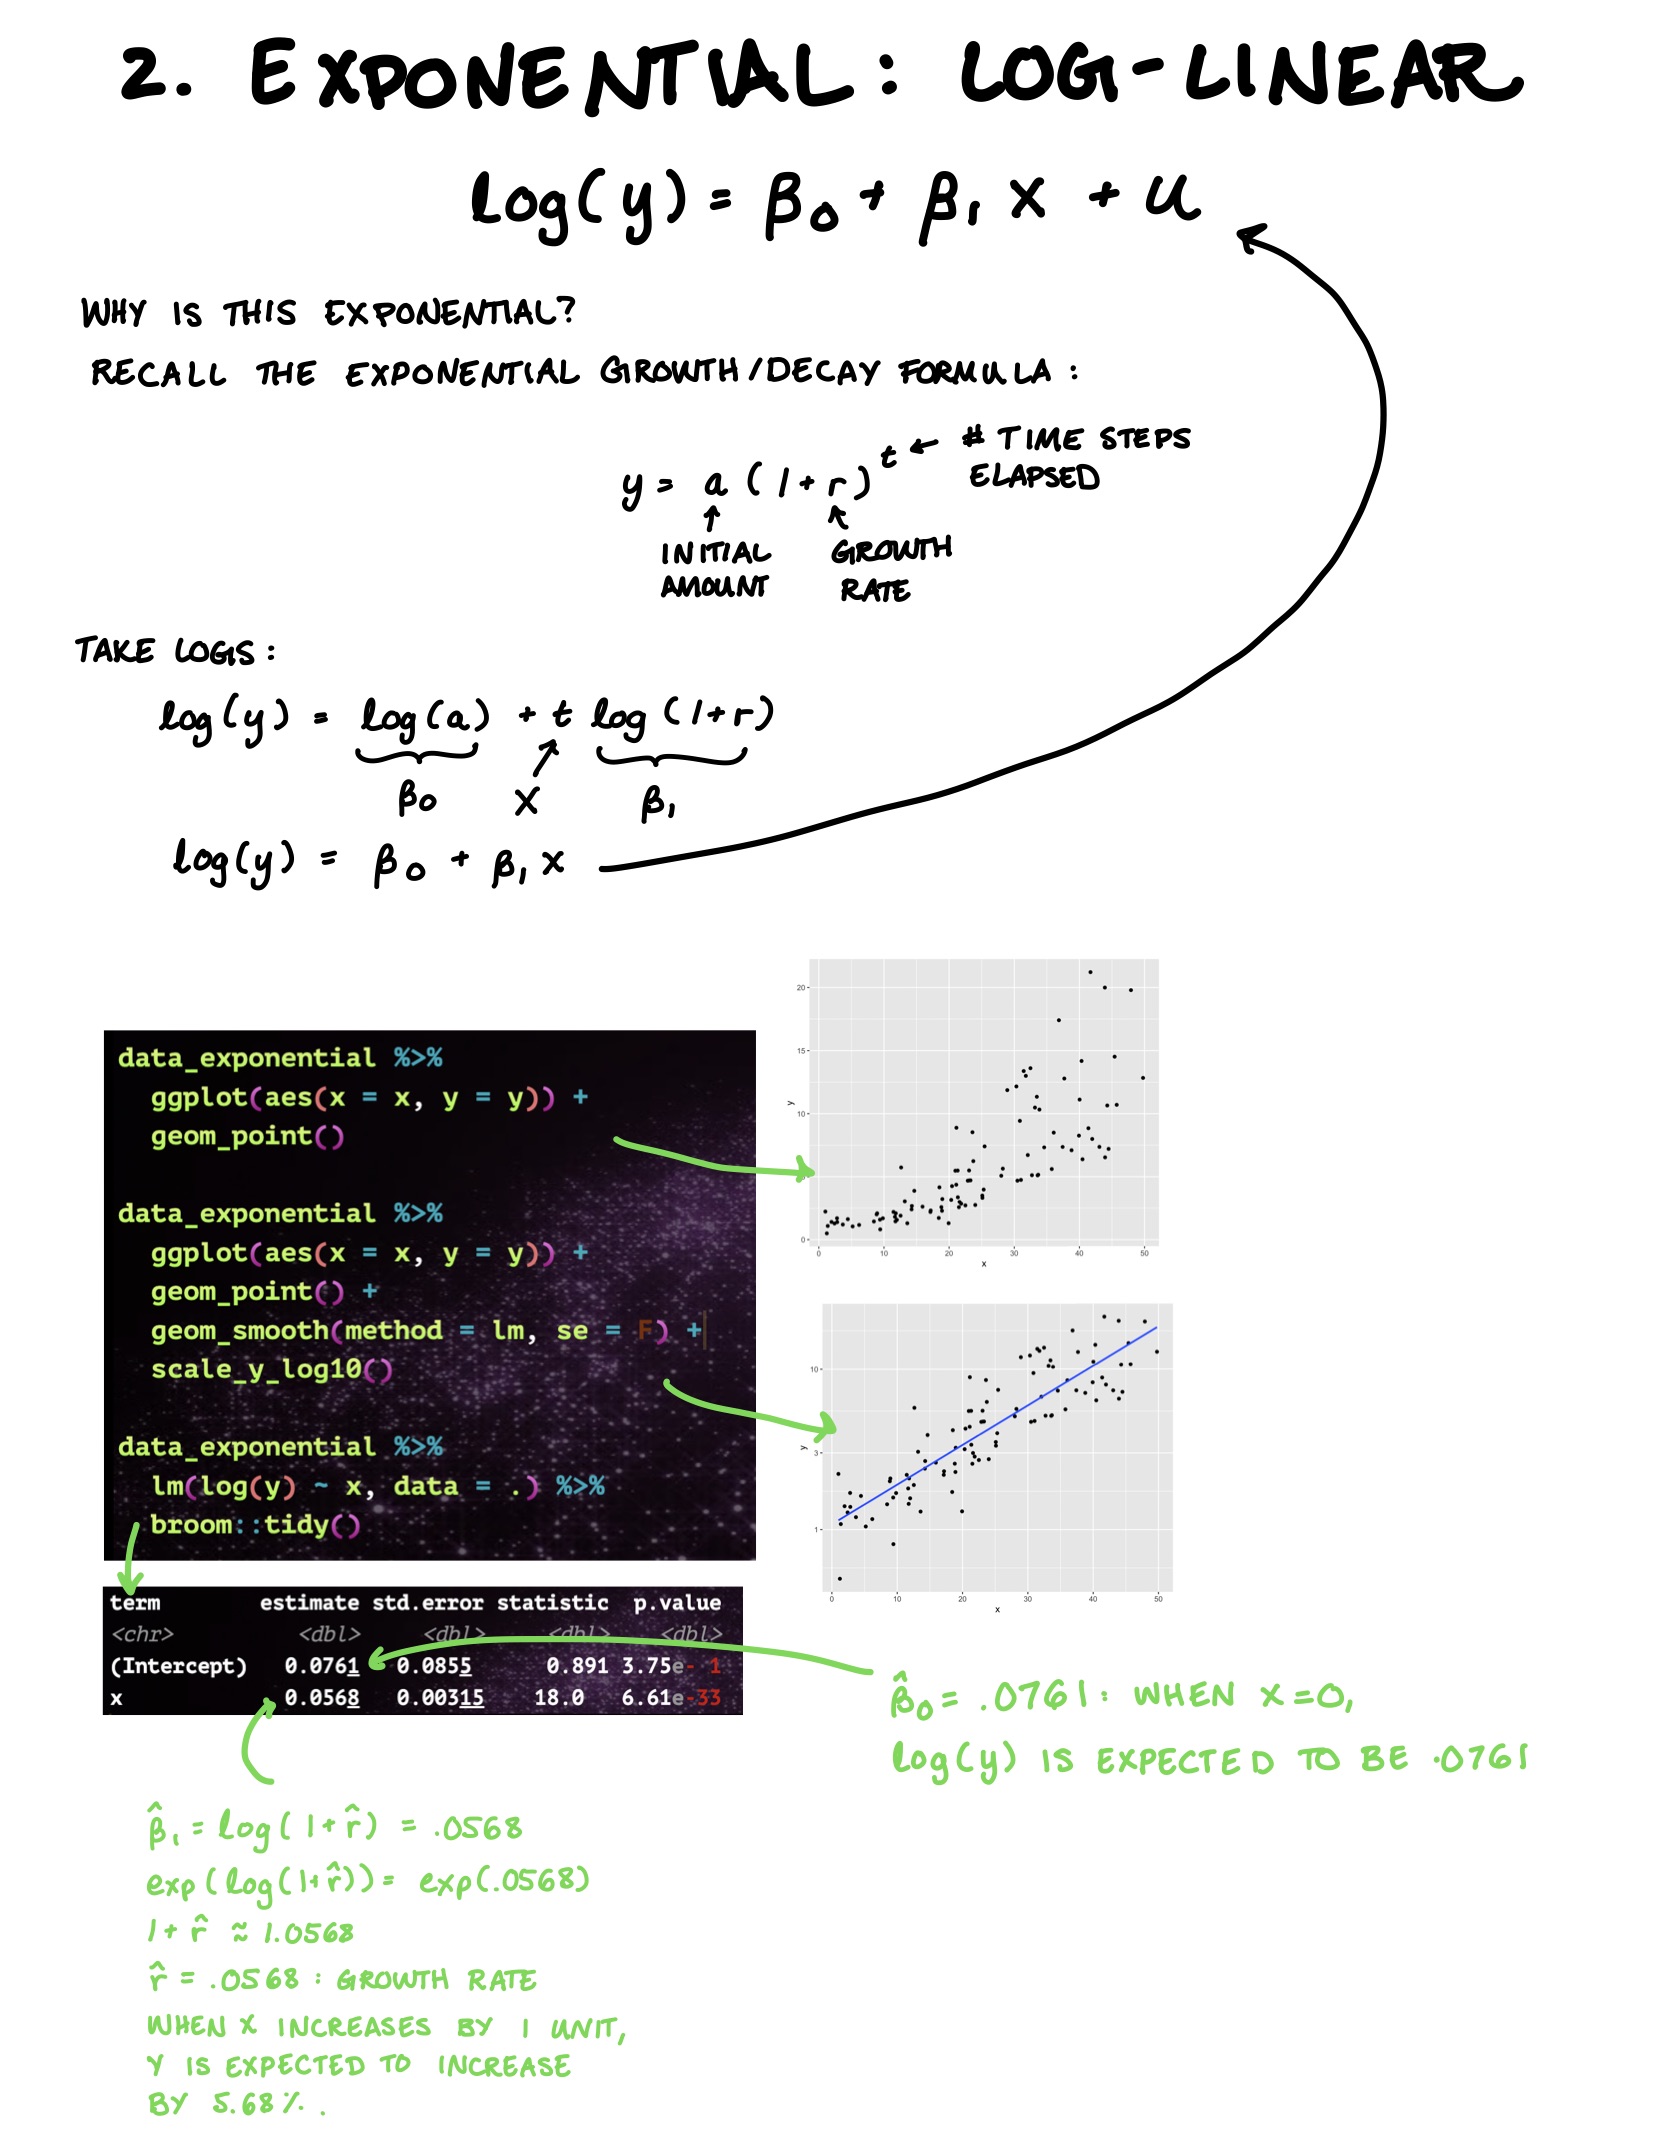 2. EXPONENTIAL: LOG-LINEAR
log(y) = β₀ + β₁ x + u
WHY IS THIS EXPONENTIAL?
RECALL THE EXPONENTIAL GROWTH/DECAY FORMULA:
y = a (1+r)^t ← # TIME STEPS
ELAPSED
↑ ↑
INITIAL GROWTH
AMOUNT RATE
TAKE LOGS:
log(y) = log(a) + t log(1+r)
β₀ x β₁
log(y) = β₀ + β₁ x
data_exponential %>%
ggplot(aes(x = x, y = y)) +
geom_point()
data_exponential %>%
ggplot(aes(x = x, y = y)) +
geom_point() +
geom_smooth(method = lm, se = F) +
scale_y_log10()
data_exponential %>%
lm(log(y) ~ x, data = .) %>%
broom::tidy()
20
15
10
y
0
0 10 20 30 40 50
x
10
y
3
1
0 10 20 30 40 50
x
term estimate std.error statistic p.value
<chr> <dbl> <dbl> <dbl> <dbl>
(Intercept) 0.0761 0.0855 0.891 3.75e- 1
x 0.0568 0.00315 18.0 6.61e-33
β̂₀ = .0761: WHEN X=0,
log(y) IS EXPECTED TO BE .0761
β̂₁ = log(1+r̂) = .0568
exp(log(1+r̂)) = exp(.0568)
1+ r̂ ≈ 1.0568
r̂ = .0568 : GROWTH RATE
WHEN X INCREASES BY 1 UNIT,
Y IS EXPECTED TO INCREASE
BY 5.68%.